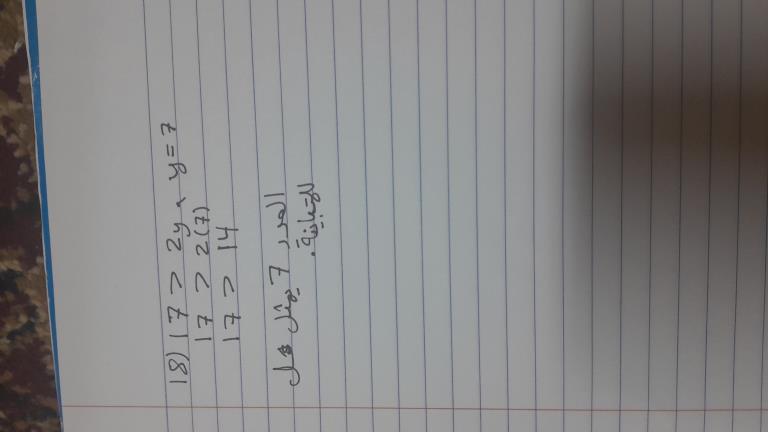 18) 17 > 2y، y = 7
17 > 2(7)
17 > 14
العدد 7 يمثل حل
للمتباينة.